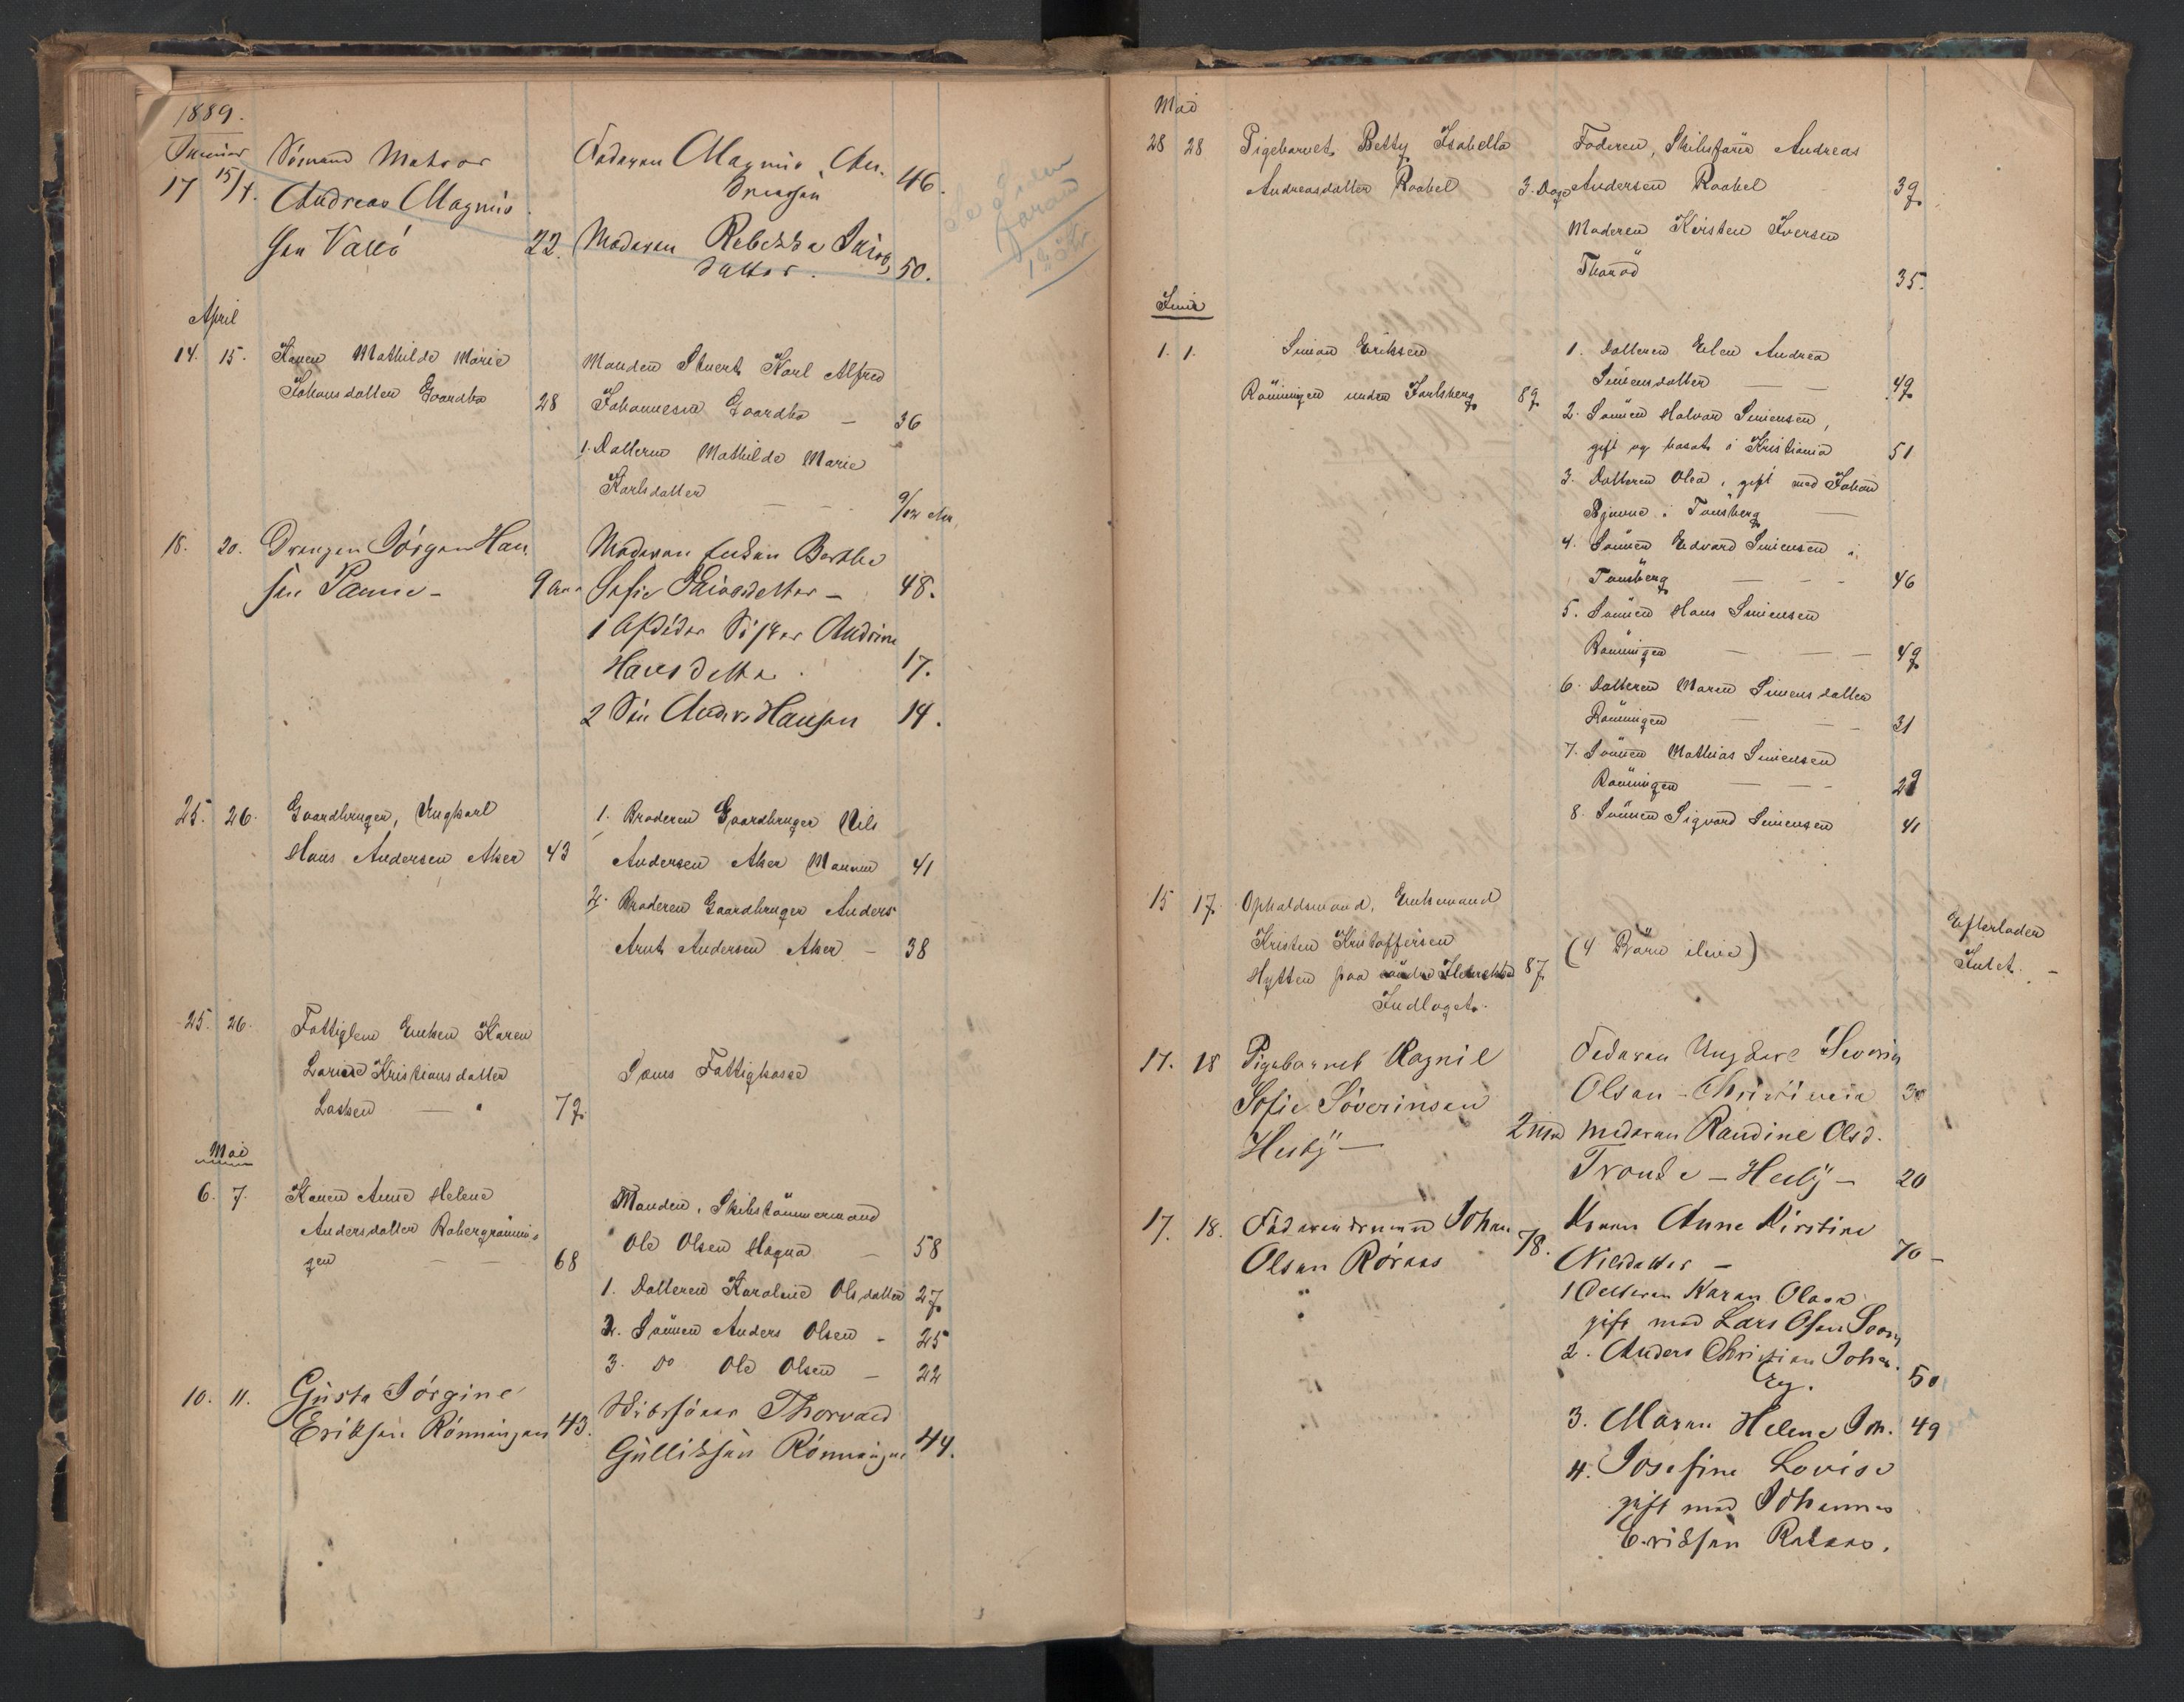 1889.
Januar Sömand Matros Faderen Magnus An-
17 15/4. Andreas Magnus dreasen 46.
sen Vallö 22. Moderen Rebekka Jacobs
datter. 50.
Se
foran
April
14. 15. Konen Mathilde Marie Manden Stuert Karl Alfred
Johansdatter Gaardbo 28 Johannesen Gaardbo — 36
1. Datteren Mathilde Marie
Karlsdatter — — 9/12 Aar
18. 20. Drengen Jörgen Han Moderen Enken Berthe
sen Ramn- 9 Aar Sofie — 48.
1 Afdödes Söster Andrine
Hansdatter. 17.
2 Sön Anders Hansen 14.
25. 26. Gaardbruger, Ungkarl 1. Broderen Gaardbruger Nils
Hans Andersen Aker 43 Andersen Aker 41
2. Broderen Gaardbruger Anders
Arnt Andersen Aker — 38
25. 26. Fattiglem Enken Karen
Kristiansdatter Sems Fattigkasse
— 77.
Mai
6. 7. Konen Anne Helene Manden, Skibstömmermand
Andersdatter Rabergrönnin-
gen — — 68 Ole Olsen Hogna — 58
1. Datteren Karoline Olsdatter 27
2. Sönnen Anders Olsen - 25
3. Do Ole Olsen — 22
10. 11. Gusta Jörgine Thorvald
Eriksen Rönningen 43. Gulliksen Rönningen 44.
Mai
28 28 Pigebarnet Betty Isabella Faderen, Skibsförer Andreas
Andreasdatter Raabel 3. Dage Andersen Raabel 39
Moderen Kirsten Iversen
Tharöd 35.
Juni
1. 1. Simen Eriksen 1. Datteren Elen Andrea
Simensdatter — — 49
Rönningen under Jarlsberg 89 2. Sönnen Halvor Simensen,
gift og bosat i Kristiania 51
3. Datteren Olea, gift med Johan
Bjunne i Tönsberg —
4. Sönnen Edvard Simensen i
Tönsberg — - - 46
5. Sönnen Hans Simensen
Rönningen — — — 49
6. Datteren Maren Simensdatter
Rönningen — — 31
7. Sönnen Mathias Simensen
Rönningen — — - 29
8. Sönnen Sigvard Simensen 41
15 17. Opholdsmand, Enkemand
Kristen Kristoffersen (4 Börn ilive) Efterlader
Hytten paa söndre 87 Intet. -
Indlaget.
17. 18 Pigebarnet Ragnil Faderen Ungkarl Severin
Sofie Söverinsen Olsen - Christiania 30
Heiby — 2 mnd Moderen Randine Olsd.
— Heiby — 20
17. 18. Föderaadsmand Johan 78. Konen Anne Kirstine
Olsen Röraas Nilsdatter — 70 -
1 Datteren Karen Olava
gift med Lars Olsen
2. Anders Christian Johan. 50
3. Maren Helene Joh. 49
4. Josefine Lovise
gift med Johannes
Eriksen.